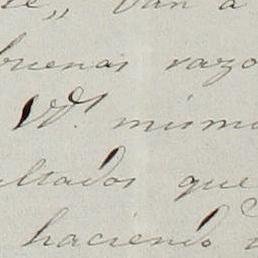 van a
buenas razo
Vds. mismo
ultados que
haciendo